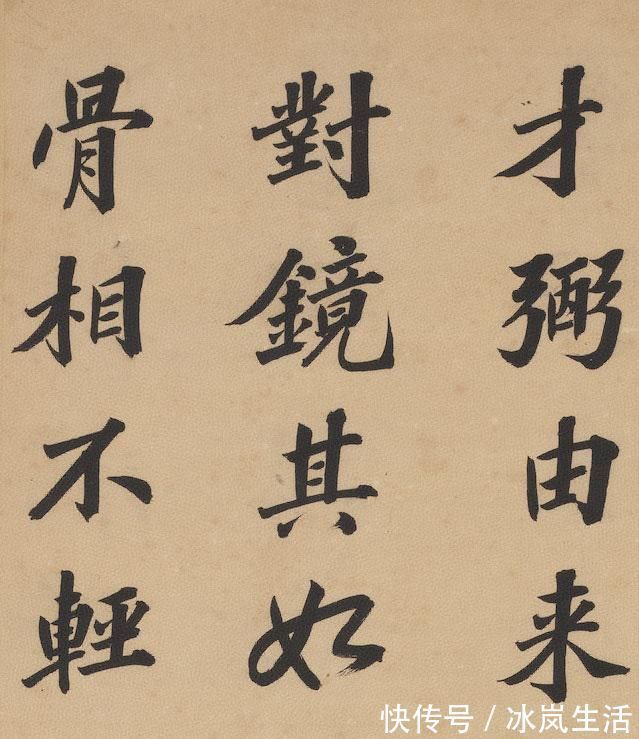 才弼由来
對鏡其如
骨相不輕
快传号 / 冰岚生活